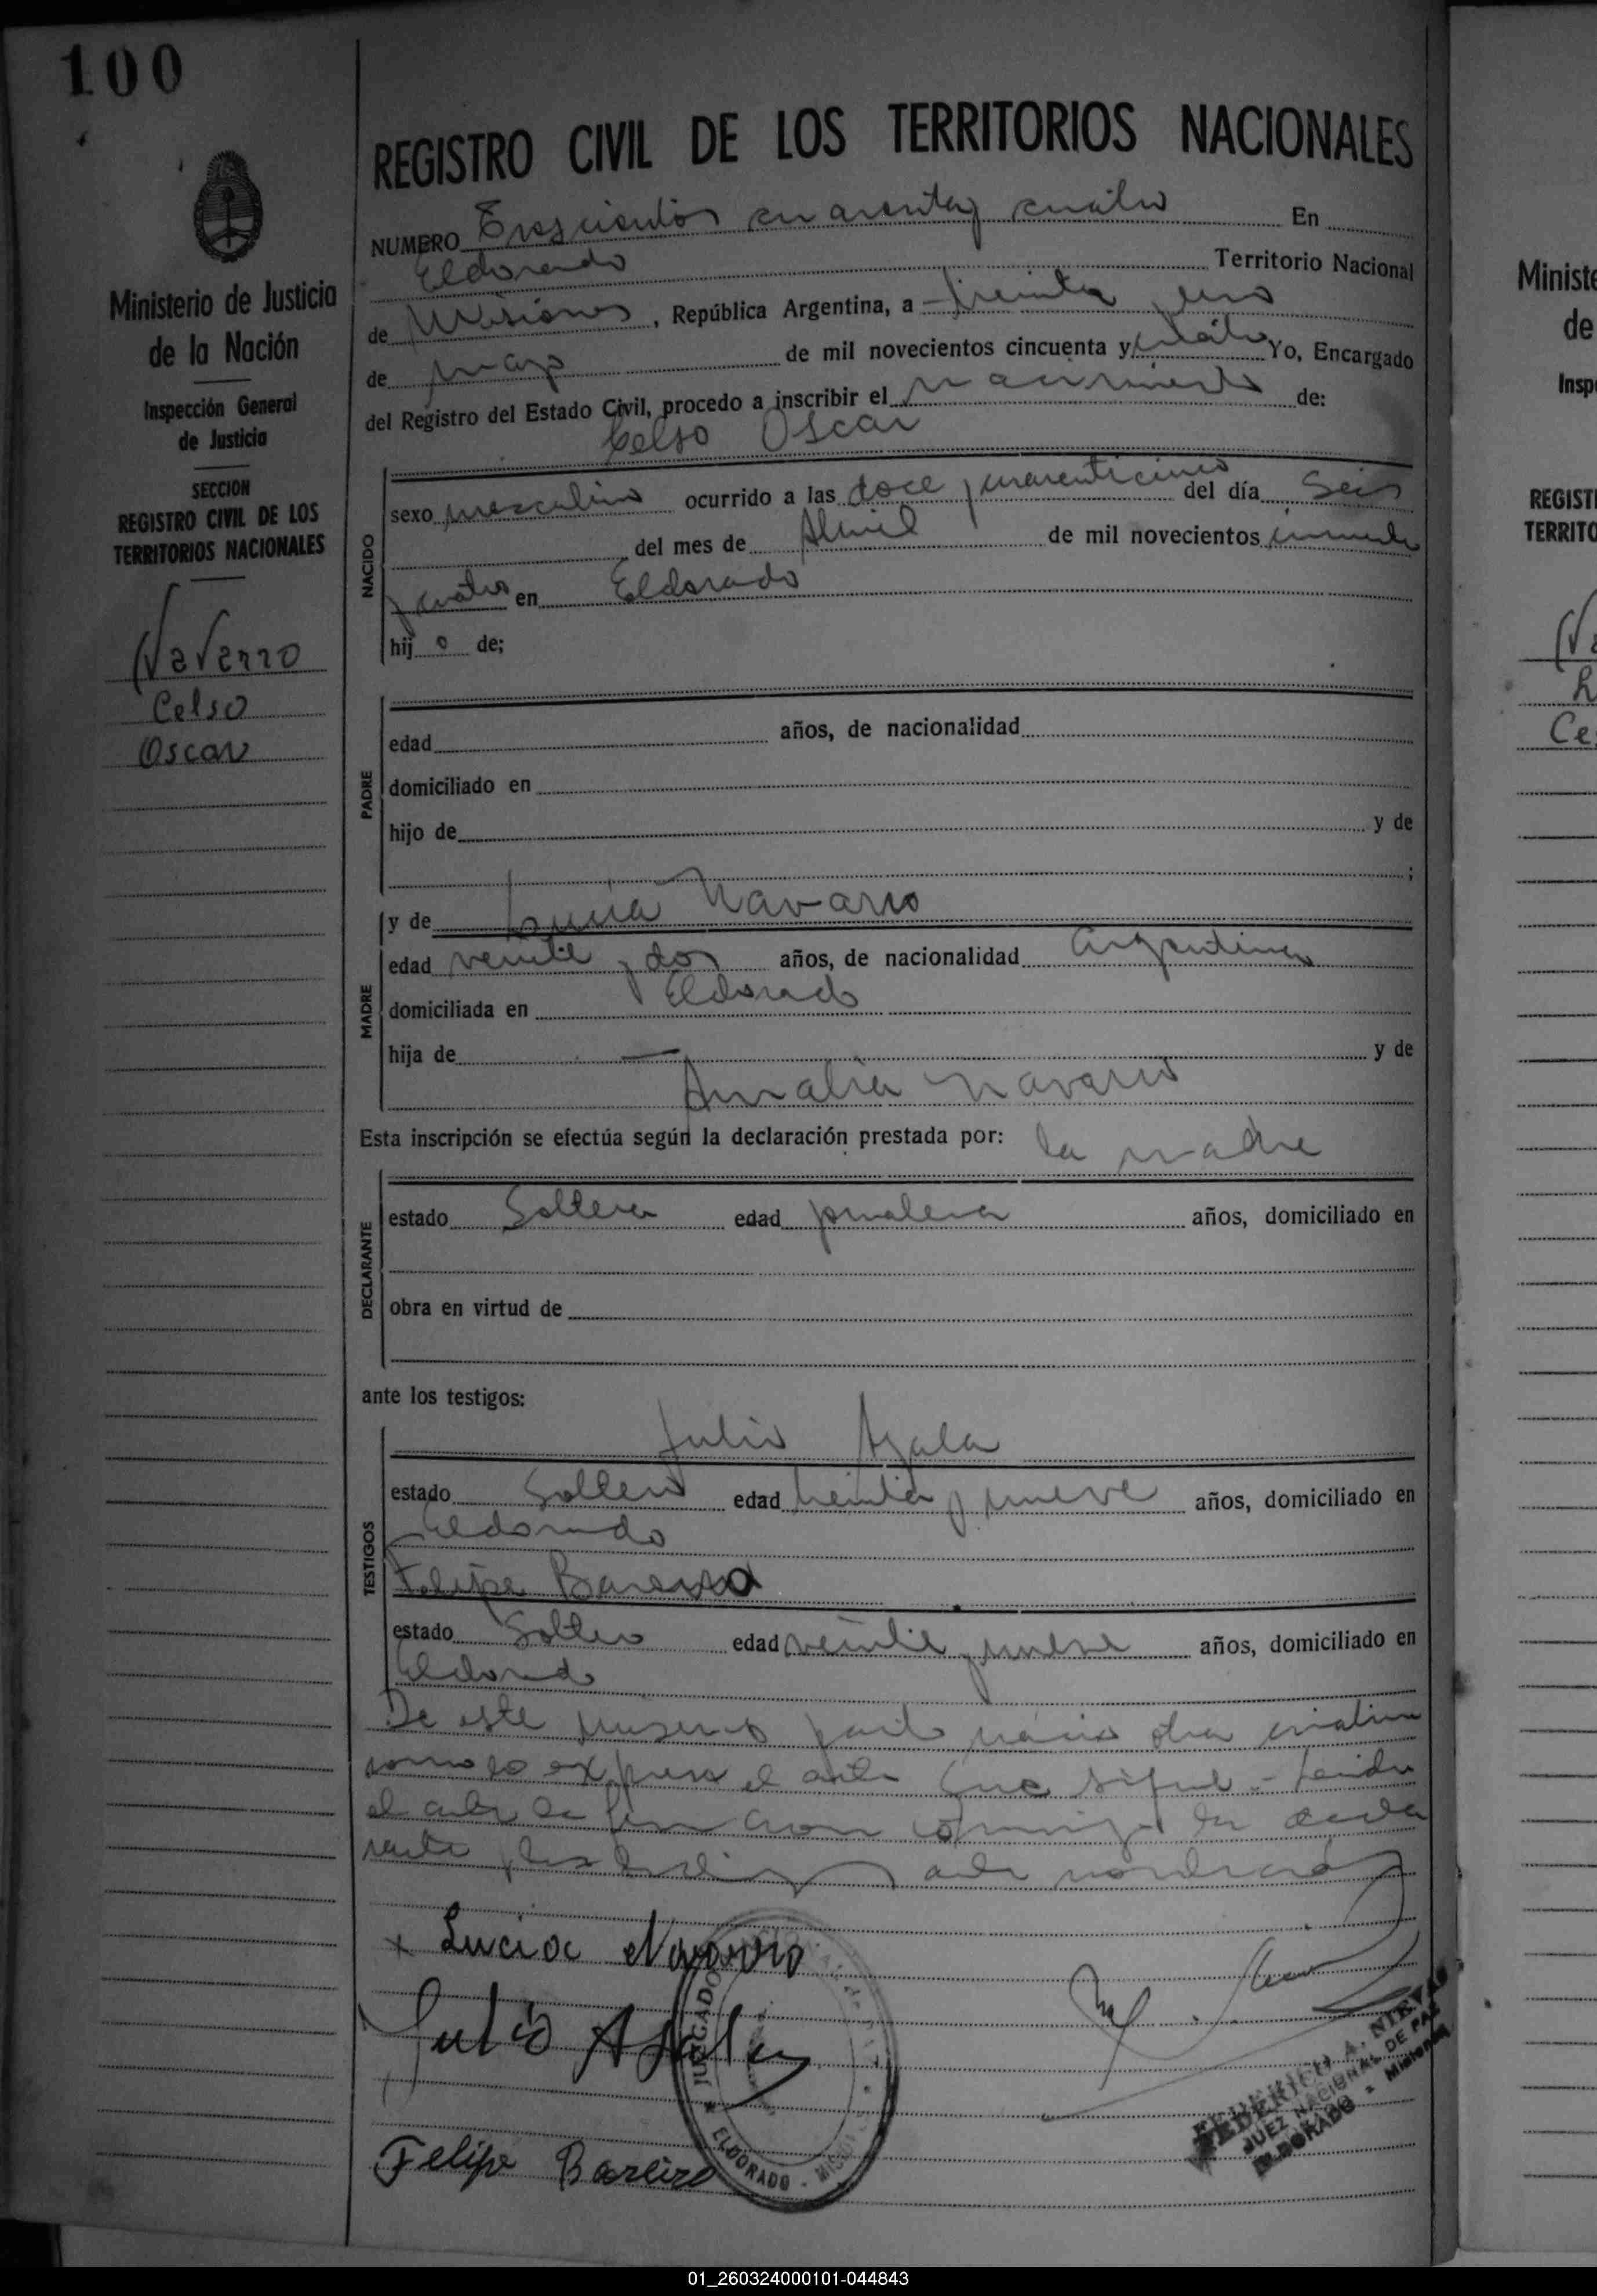 100
REGISTRO CIVIL DE LOS TERRITORIOS NACIONALES
NUMERO Trescientos cuarenta y cuatro En
Eldorado Territorio Nacional
de Misiones, República Argentina, a treinta y uno
de mayo de mil novecientos cincuenta y cuatro Yo, Encargado
del Registro del Estado Civil, procedo a inscribir el nacimiento de:
Celso Oscar
Ministerio de Justicia
de la Nación
Inspección General
de Justicia
SECCION
REGISTRO CIVIL DE LOS
TERRITORIOS NACIONALES
Navarro
Celso
Oscar
NACIDO
sexo masculino ocurrido a las doce y cuarenticinco del día Seis
del mes de Abril de mil novecientos cincuenta
y cuatro en Eldorado
hijo de;
PADRE
edad años, de nacionalidad
domiciliado en
hijo de y de
;
MADRE
y de Lucia Navarro
edad veinte y dos años, de nacionalidad Argentina
domiciliada en Eldorado
hija de — y de
Amalia Navarro
Esta inscripción se efectúa según la declaración prestada por: la madre
DECLARANTE
estado Soltera edad jornalera años, domiciliado en
obra en virtud de
ante los testigos:
TESTIGOS
Julio Ayala
estado Soltero edad treinta y nueve años, domiciliado en
Eldorado
Felipe Bareiro
estado Soltero edad veinte y nueve años, domiciliado en
Eldorado
De este mismo parto nació otra criatura
como lo expresa el acta que sigue.- Leida
el acta la firman conmigo la decla
rante y los testigos
x Lucia Navarro
Julio Ayala
Felipe Bareiro
JUZGADO
ELDORADO - MISIONES
FEDERICO A. NIEVAS
JUEZ NACIONAL DE PAZ
ELDORADO - Misiones
Ministe
de
Insp
REGISTI
TERRITO
Ce
01_260324000101-044843